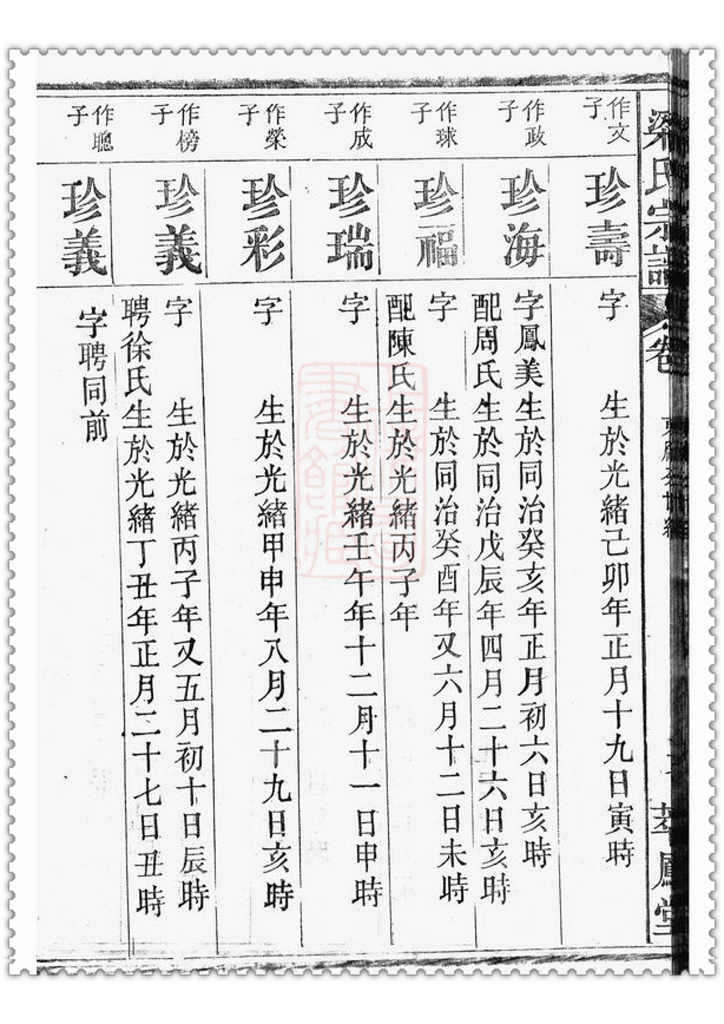 梁氏宗譜
卷
作文子
珍壽
字　生於光緒己卯年正月十九日寅時
作政子
珍海
字鳳美生於同治癸亥年正月初六日亥時
配周氏生於同治戊辰年四月二十六日亥時
作球子
珍福
字　生於同治癸酉年又六月十二日未時
配陳氏生於光緒丙子年
作成子
珍瑞
字　生於光緒壬午年十二月十一日申時
作榮子
珍彩
字　生於光緒甲申年八月二十九日亥時
作榜子
珍義
字　生於光緒丙子年又五月初十日辰時
聘徐氏生於光緒丁丑年正月二十七日丑時
作聰子
珍義
字聘同前